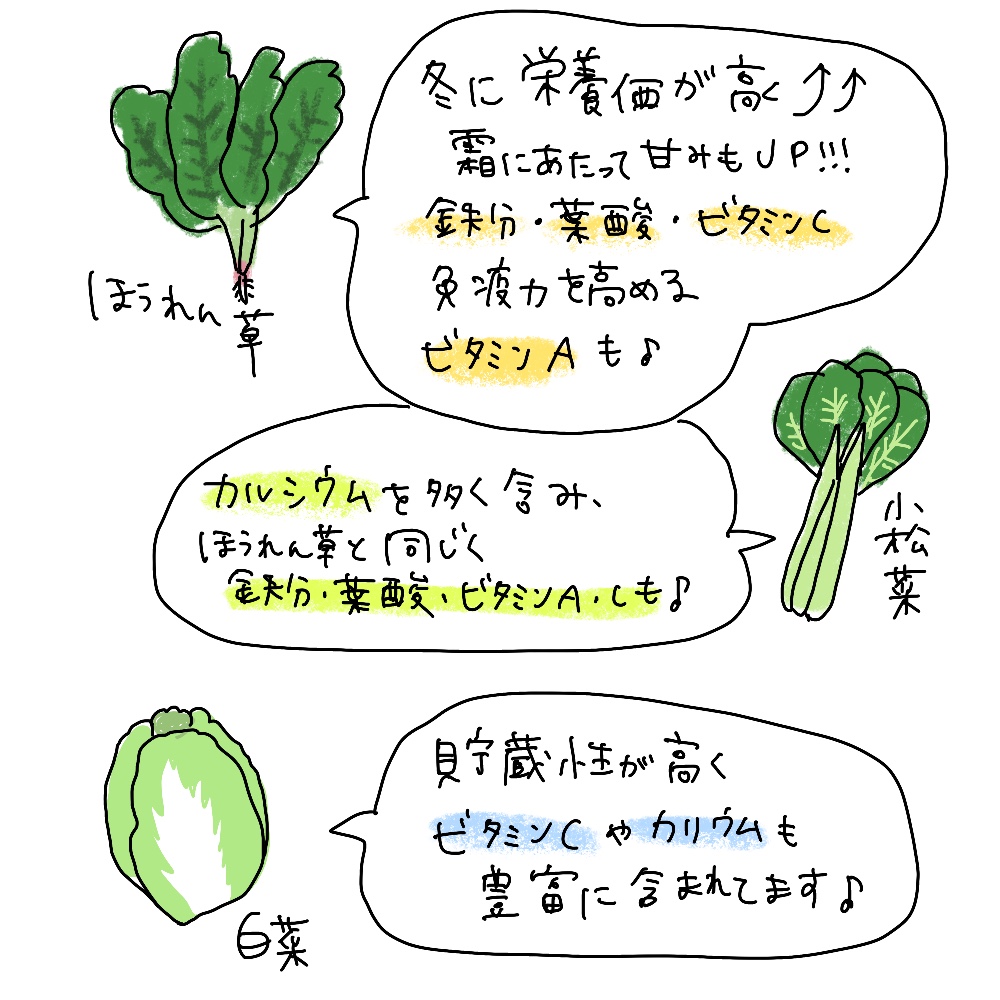 冬に栄養価が高く↑↑
霜にあたって甘みもUP!!!
鉄分・葉酸・ビタミンC
免疫力を高める
ビタミンAも♪
ほうれん草
カルシウムを多く含み、
ほうれん草と同じく
鉄分・葉酸・ビタミンA・Cも♪
小松菜
貯蔵性が高く
ビタミンCやカリウムも
豊富に含まれてます♪
白菜